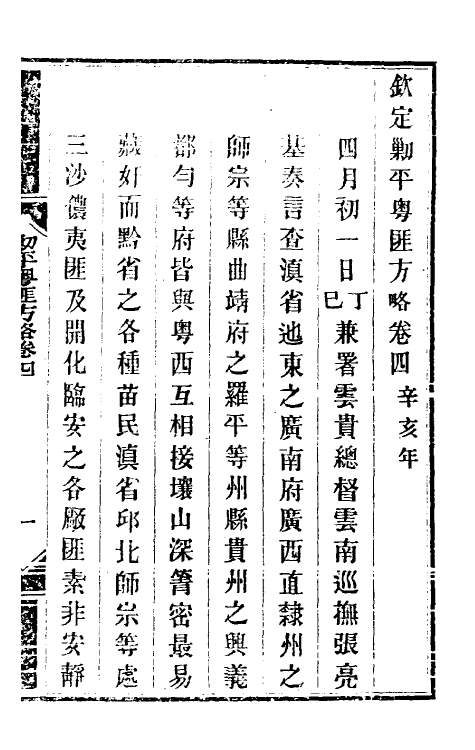 欽定勦平粵匪方略卷四 辛亥年
四月初一日丁巳兼署雲貴總督雲南巡撫張亮
基奏言查滇省迤東之廣南府廣西直隸州之
師宗等縣曲靖府之羅平等州縣貴州之興義
都勻等府皆與粵西互相接壤山深箐密最易
藏奸而黔省之各種苗民滇省邱北師宗等處
三沙儂夷匪及開化臨安之各厰匪素非安靜
勦平粵匪方略卷四
一